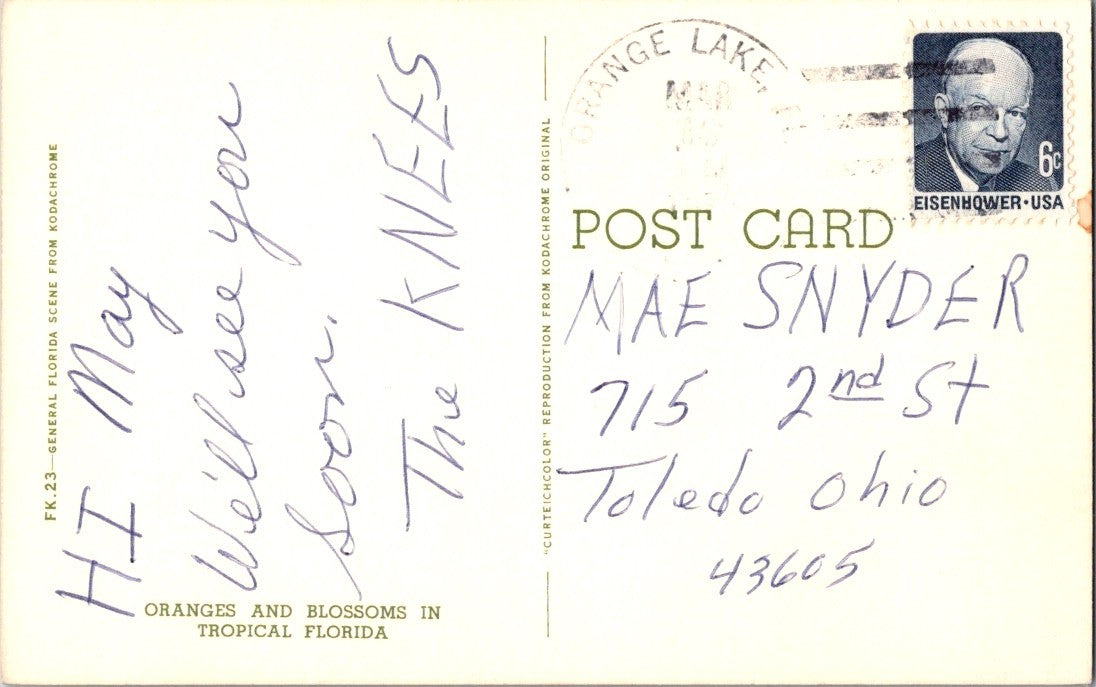 FK.23—GENERAL FLORIDA SCENE FROM KODACHROME
HI May
We'll see you
soon.
The KNEES
ORANGES AND BLOSSOMS IN
TROPICAL FLORIDA
"CURTEICHCOLOR" REPRODUCTION FROM KODACHROME ORIGINAL
ORANGE LAKE,
MAR
6c
EISENHOWER·USA
POST CARD
MAE SNYDER
715 2nd St
Toledo Ohio
43605